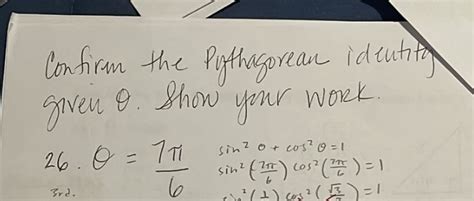 Confirm the Pythagorean identity
given θ. Show your work.
26. θ = 7π/6
sin² θ + cos² θ = 1
sin² (7π/6) cos² (7π/6) = 1
3rd.
sin² (1/2) cos² (√3/2) = 1